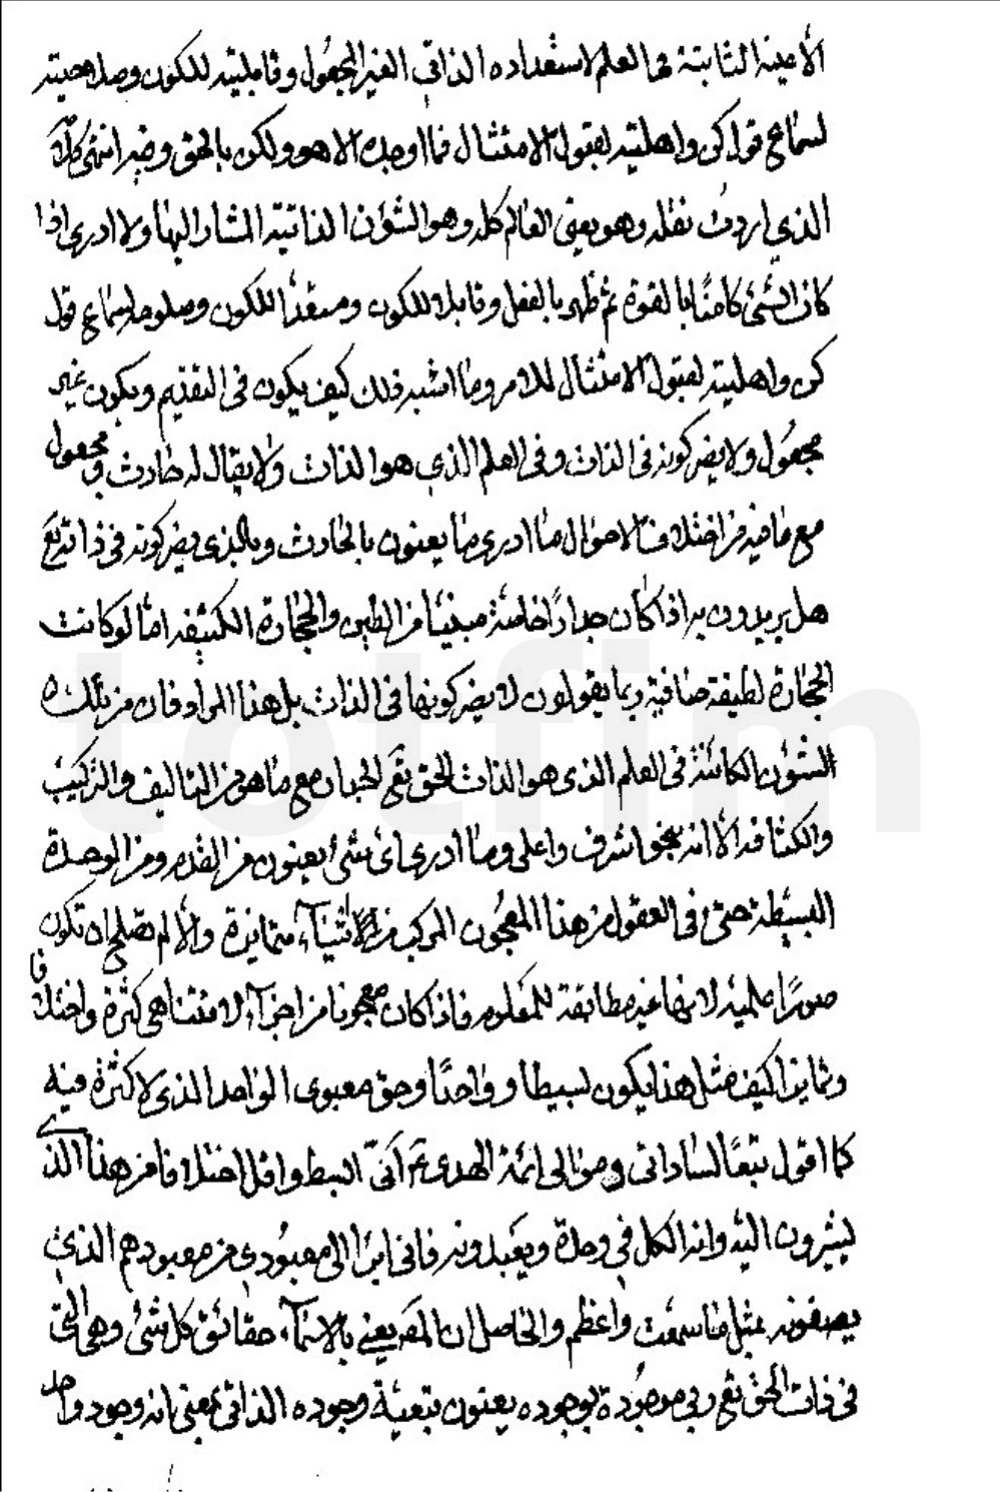 الأعيان الثابتة في العلم لاستعداده الذاتي الغير المجعول وقابليته للكون وصلاحيته
لسماع قول كن واهليته لقبول الامتثال فما اوجده الا هو ولكن بالحق وفيه انتهى كلامه
الذي اردت نقله وهو يعني العالم كله وهو الشؤن الذاتية المشار اليها ولا ادري اذا
كان الشئ كامنًا بالقوة ثم ظهر بالفعل وقابلا للكون ومستعدًا للكون وصلوحا لسماع قول
كن واهليته لقبول الامتثال للامر وما اشبه ذلك كيف يكون في القديم ويكون غير
مجعول ولا يضر كونه في الذات وفي العلم الذي هو الذات ولا يقال له حادث ومجعول
مع ما فيه من اختلاف الاحوال ما ادري ما يعنون بالحادث وبالذي يضر كونه في ذاته تع
هل يريدون به اذا كان جدارًا خاصة مبنيًا من الطين والحجارة الكثيفة اما لو كانت
الحجارة لطيفة صافية ربما يقولون لا يضر كونها في الذات بل هذا المراد فان من تلك
الشؤن الكائنة في العلم الذي هو الذات الحق تع الجدار مع ما هو من التاليف والتركيب
والكثافة الا انه بنحو اشرف واعلى وما ادري اي شئ يعنون من القدم ومن الوحدة
البسيطة حتى في العقول من هذا المعجون المركب من الاشياء متمايزة والا لم تصلح ان تكون
صورًا علمية لانها غير مطابقة للمعلوم فاذا كان معجونا من اجزاء لا تتناهى كثرة واختلافا
وتمايزا كيف مثل هذا يكون بسيطا وواحدًا وحق معبودي الواحد الذي لا كثرة فيه
كما اقول تبعًا لساداتي وموالي ائمة الهدى ع انّي ابسط واقل اختلافا من هذا الذي
يشيرون اليه وانه الكل في وحدة ويعبدونه فاني ابرأ الى معبودي من معبودهم الذي
يصفونه بمثل ما سمعت واعظم والحاصل ان المص يعني بالاسماء حقائق كل شئ وهي التي
في ذات الحق تع وهي موجودة بوجوده يعنون بتبعية وجوده الذاتي بمعنى انه وجود واحد